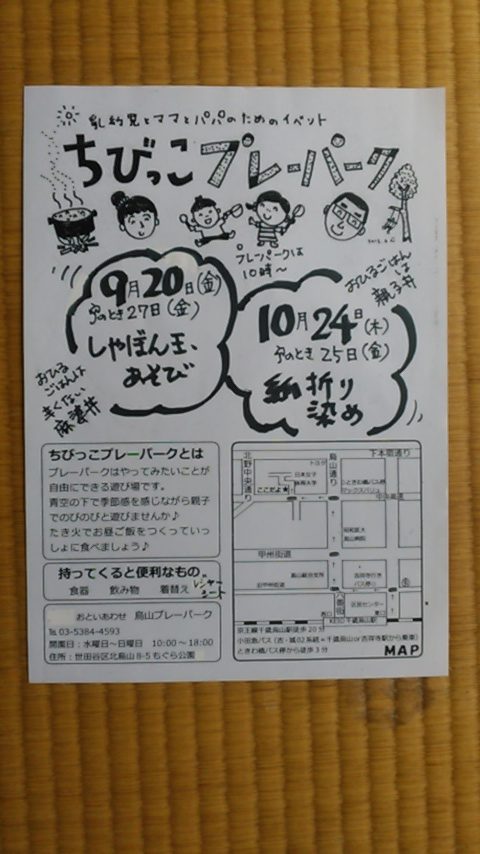 乳幼児とママとパパのためのイベント
ちびっこプレーパーク
プレーパークは
10時～
9月20日(金)
雨のとき27日(金)
しゃぼん玉、
あそび
おひる
ごはんは
辛くない
麻婆丼
おひるごはんは
親子丼
10月24日(木)
雨のとき25日(金)
紙折り
染め
ちびっこプレーパークとは
プレーパークはやってみたいことが
自由にできる遊び場です。
青空の下で季節感を感じながら親子
でのびのびと遊びませんか♪
たき火でお昼ご飯をつくっていっ
しょに食べましょう♪
持ってくると便利なもの
食器 飲み物 着替え レジャーシート
おといあわせ 烏山プレーパーク
℡ 03-5384-4593
開園日：水曜日～日曜日 10:00～18:00
住所：世田谷区北烏山8-5もぐら公園
北野中央通り
烏山通り
下本宿通り
トヨタ
ここだよ★
日本女子
体育大学
ときわ橋バス停
マックスバリュ
中央高速
昭和医大
烏山病院
甲州街道
旧甲州街道
吉祥寺行き
バス停
区民センター
西口
東口
KEIO 千歳烏山駅
京王線千歳烏山駅徒歩20分
小田急バス(吉・城02系統＝千歳烏山or吉祥寺駅から乗車)
ときわ橋バス停から徒歩3分
MAP